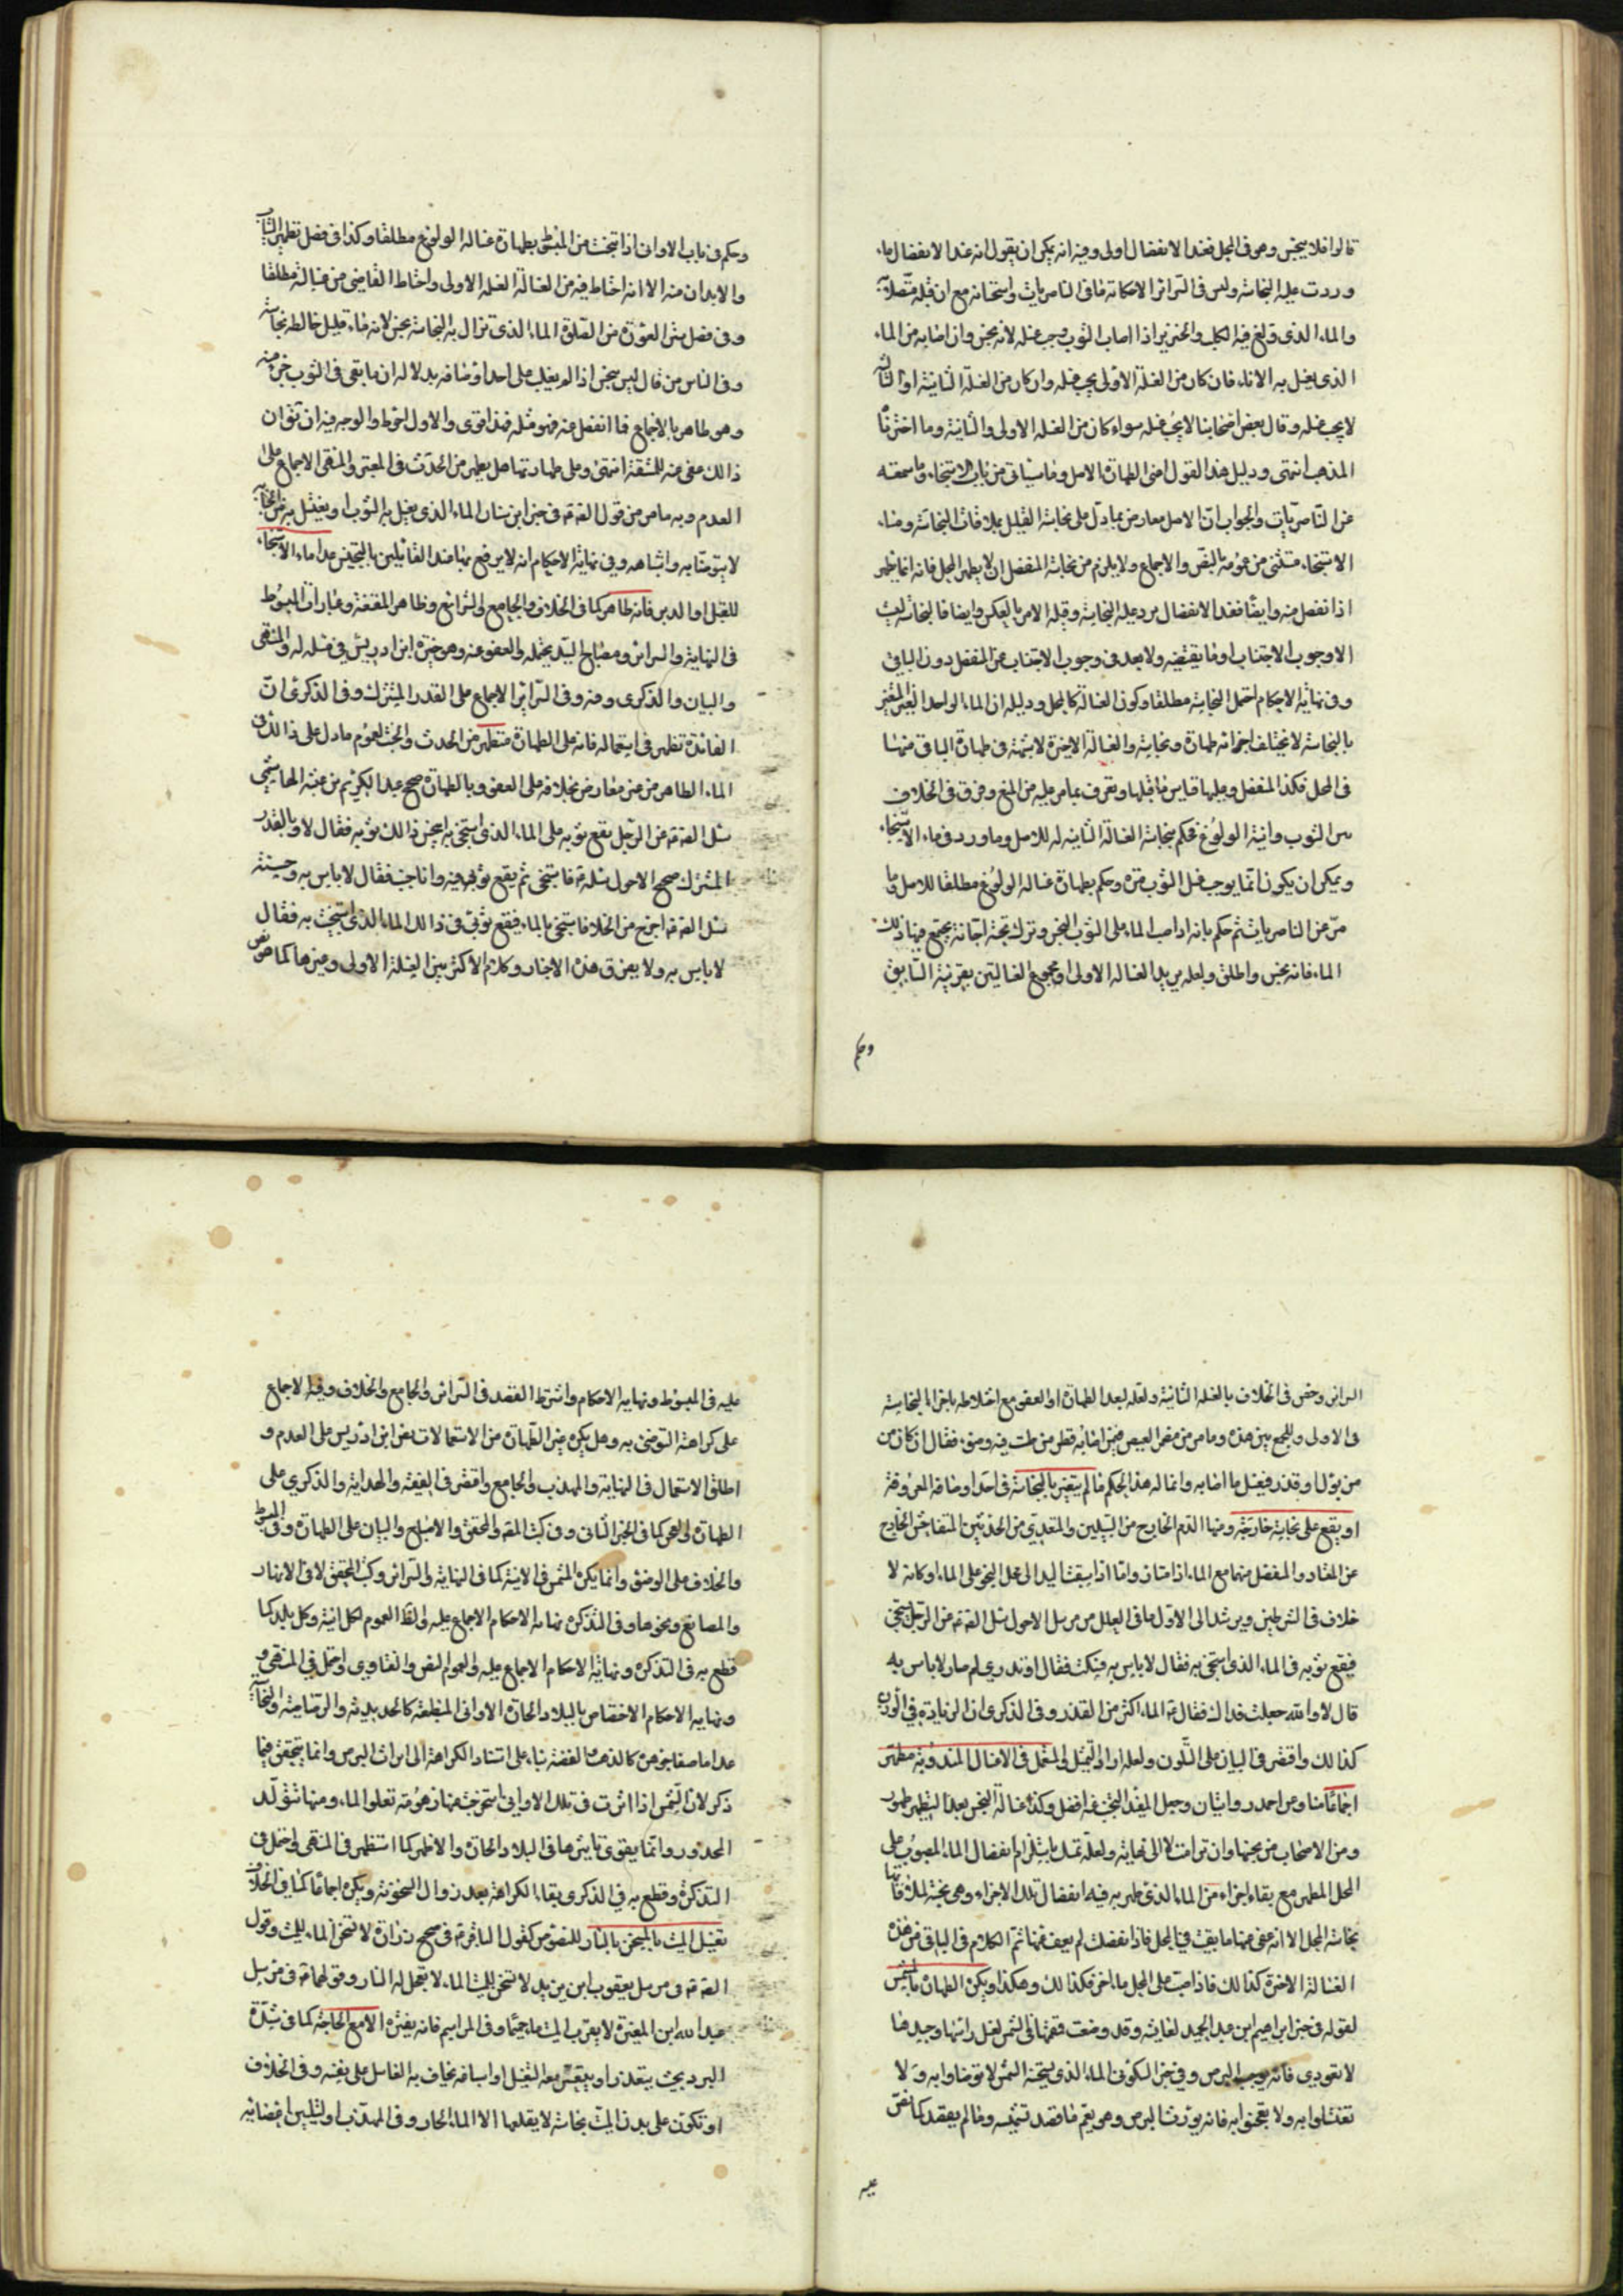 قالوا فلا ينجس وهو فى المحل فعند الانفصال اولى وفيه انه يمكن ان يقول انه عند الانفصال ماء
وردت عليه النجاسة وليس فى السرائر الا حكاية ما فى الناصريات واستحسانه مع ان قبله متصلا به
والماء الذى ولغ فيه الكلب والخنزير اذا اصاب الثوب وجب غسله لانه نجس وان اصابه من الماء
الذى يغسل به الاناء فان كان من الغسلة الاولى يجب غسله وان كان من الغسلة الثانية او الثالثة
لا يجب غسله وقال بعض اصحابنا لا يجب غسله سواء كان من الغسلة الاولى والثانية وما اخترناه
المذهب انتهى ودليل هذا القول اعنى الطهارة الاصل وما سياتى من باب الاستنجاء وما سمعته
عن الناصريات والجواب ان الاصل معارض بما دل على نجاسة القليل بملاقات النجاسة وماء
الاستنجاء مستثنى من عمومه بالنص والاجماع ولا يلزم من نجاسة المنفصل ان لا يطهر المحل فانه انما يطهر
اذا انفصل منه وايضا فعند الانفصال يرد عليه النجاسة وقبله الامر بالعكس وايضا فالنجاسة ليست
الا وجوب الاجتناب او ما يقتضيه ولا بعد فى وجوب الاجتناب عن المنفصل دون الباقى
وفى نهاية الاحكام احتمل النجاسة مطلقا وكون الغسالة كالمحل ودليله ان الماء الواحد الغير المتغير
بالنجاسة لا يختلف اجزائه طهارة ونجاسة والغسالة الاخيرة لا شبهة فى طهارة الباقى منها
فى المحل فكذا المنفصل وعليها قياس ما قبلها وتعرف بما مر عليه من المنع وفرق فى الخلاف
بين الثوب وانية الولوغ فحكم بنجاسة الغسالة الثانية له للاصل وما ورد فى ماء الاستنجاء
ويمكن ان يكون انما يوجب غسل الثوب مرة وحكم بطهارة غسالة الولوغ مطلقا للاصل وما
مر عن الناصريات ثم حكم بانه اذا صب الماء على الثوب النجس وترك تحته اجانة يجتمع فيها ذلك
الماء فانه نجس واطلق ولعله يريد الغسالة الاولى او مجموع الغسالتين بقرينة السابق
وحكم
وحكم فى باب الاوانى اذا تنجست من المبسوط بطهارة غسالة الولوغ مطلقا وكذا فى فصل تطهير الثياب
والابدان منه الا انه احتاط فيه من الغسالة الغسلة الاولى واحتاط القاضى من غسالته مطلقا
وفى فصل ستر العورة من الصلوة الماء الذى تزال به النجاسة نجس لانه ماء قليل خالطه نجاسة
وفى الناس من قال ليس بنجس اذا لم يغلب على احد اوصافه بدلالة ان ما بقى فى الثوب جزء منه
وهو طاهر بالاجماع فما انفصل عنه فهو مثله فهذا قوى والاول احوط والوجه فيه ان نقول ان
ذلك عفى عنه للمشقة انتهى وعلى طهارتها هل يطهر من الحدث فى المعتبر والمنتهى الاجماع على
العدم وبه ما مر من قول الصه‍ فى خبر ابن سنان الماء الذى يغسل به الثوب او يغتسل به من الجنابة
لا يتوضأ به واشباهه وفى نهاية الاحكام انه لا يرفع بها عند القائلين بالتنجيس عدا ماء الاستنجاء
للقبل او الدبر فانه طاهر كما فى الخلاف والجامع والشرائع وظاهر المقنعة وعبارات المبسوط
فى النهاية والسرائر ومصباح السيد يحتمله والعفو عنه وهو خيرة ابن ادريس فى مسئلة له والمنتهى
والبيان والذكرى ومنه وفى السرائر الاجماع على القدر المشترك وفى الذكرى ان
الفائدة تظهر فى استعماله فانه على الطهارة متطهر من الحدث والخبث لعموم ما دل على ذلك فى
الماء الطاهر من غير معارض بخلافه على العفو وبالطهارة صحيح عبد الكريم بن عتبة الهاشمى
سئل الصه‍ عن الرجل يقع ثوبه على الماء الذى استنجى به اينجس ذلك ثوبه فقال لا وبالقدر
المشترك صحيح الاحول سئله فاستنجى ثم يقع ثوبى فيه وانا جنب فقال لا باس به وحسنته
سئل الصه‍ اخرج من الخلا فاستنجى بالماء فيقع ثوبى فى ذلك الماء الذى استنجيت به فقال
لا باس به ولا يفرق هذه الاخبار وكلام الاكثر بين الغسلة الاولى وغيرها كما هو نص
السرائر وخص فى الخلاف بالغسلة الثانية ولعله لبعد الطهارة او العفو مع اختلاطه باجزاء النجاسة
فى الاولى وللجمع بين هذه وما مر من مضمر العيص فيمن اصابه قطر من طست فيه وضوء فقال ان كان من
من بول او قذر فيغسل ما اصابه وانما له هذا الحكم ما لم يتغير بالنجاسة فى احد اوصافه المعروفة
او يقع على نجاسة خارجة ومنها الدم الخارج من السبيلين والمتعدى من الحدثين المتفاحش الخارج
عن المعتاد والمنفصل منهما مع الماء اذا امتاز واما اذا سبقت اليد الى محل النجو على الماء او كانه لا
خلاف فى الشرطين ويرشد الى الاول ما فى العلل من مرسل الاحول سئل الصه‍ عن الرجل يستنجى
فيقع ثوبه فى الماء الذى استنجى به فقال لا باس به فسكت فقال او تدرى لم صار لا باس به
قال لا والله جعلت فداك فقال ان الماء اكثر من القذر وفى الذكرى ان الزيادة فى الوزن
كذلك واقتصر فى البيان على التلون ولعله اراد التمثيل والمستعمل فى الاغسال المندوبة مطهر
اجماعا منا ومن احمد روايتان وجعل المفيد التجنب عنه افضل وكذا غسالة النجس بعد التطهير طهور
ومن الاصحاب من نجسها وان ترامت لا الى نهاية ولعله تمسك باستلزام انفصال الماء المصبوب على
المحل المطهر مع بقاء اجزاء من الماء الذى طهر به فيه انفصال تلك الاجزاء وهى نجسة لملاقاتها
نجاسة المحل الا انه عفى عنها ما بقيت فى المحل فاذا انفصلت لم يعف عنها ثم الكلام فى الباقى من هذه
الغسالة الاخيرة كذلك فاذا صب على المحل ماء اخر فكذلك وهكذا ويكره الطهارة بالمشمس
لقوله فى خبر ابراهيم ابن عبد الحميد لعايشة وقد وضعت قمقمتها فى الشمس لغسل راسها وجسدها
لا تعودى فانه يورث البرص وفى خبر السكونى الماء الذى يسخنه الشمس لا توضأوا به ولا
تغتسلوا به ولا تعجنوا به فانه يورث البرص وهو يعم ما قصد تشميسه وما لم يقصد كما نص
عليه
عليه فى المبسوط ونهاية الاحكام واشترط القصد فى السرائر والجامع والخلاف وفيه الاجماع
على كراهة التوضى به وهل يكره غير الطهارة من الاستعمالات نص ابن ادريس على العدم و
اطلق الاستعمال فى النهاية والمهذب والجامع واقتصر فى الفقيه والهداية والذكرى على
الطهارة والعجن كما فى الخبر الثانى وفى كتب المصه‍ والمحقق والاصباح والبيان على الطهارة وفى المبسوط
والخلاف على الوضوء وانما يكره المشمس فى الانية كما فى النهاية والسرائر وكتب المحقق لا فى الانهار
والمصانع ونحوها وفى التذكرة نهاية الاحكام الاجماع عليه وانما العموم لكل انية وكل بلد كما
قطع به فى التذكرة ونهاية الاحكام الاجماع عليه ولعموم النص والفتاوى واحتمل فى المنتهى و
ونهاية الاحكام الاختصاص بالبلاد الحارة الاوانى المنطبعة كالحديدية والرصاصية والنحاسية
عدا ما صفا جوهره كالذهب الفضة بناء على استناد الكراهة الى ايراث البرص وانما يتحقق فيما
ذكر لان الشمس اذا اثرت فى تلك الاوانى استخرجت منها زهومة تعلو الماء ومنها يتولد
المحذور وانما يقوى تاثيرها فى البلاد الحارة والاظهر كما استظهر فى المنتهى واحتمل فى
التذكرة وقطع به فى الذكرى بقاء الكراهة بعد زوال السخونة ويكره اجماعا كما فى الخلاف
تغسيل الميت بالمسخن بالنار للنصوص كقول الباقر فى صحيح زرارة لا تسخن الماء للميت وقول
الصه‍ فى مرسل يعقوب ابن يزيد لا تسخن للميت الماء لا تعجل له النار وقولهما فى مرسل
عبد الله ابن المغيرة لا يقرب الميت ماء حميما وفى المراسم فانه يضره الا مع الحاجة كما فى شدة
البرد بحيث يتعذر او يتعسر معه التغسيل او اسباغه يخاف به الغاسل على نفسه وفى الخلاف
او تكون على بدن الميت نجاسة لا يقلعها الا الماء الحار وفى المهذب او لتليين اعضائه